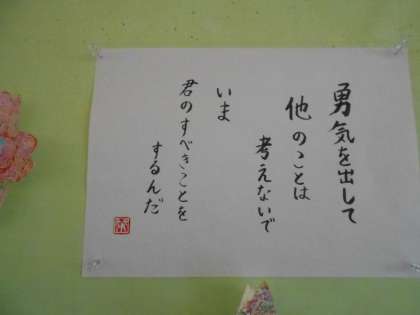 勇気を出して
他のことは
考えないで
いま
君のすべきことを
するんだ